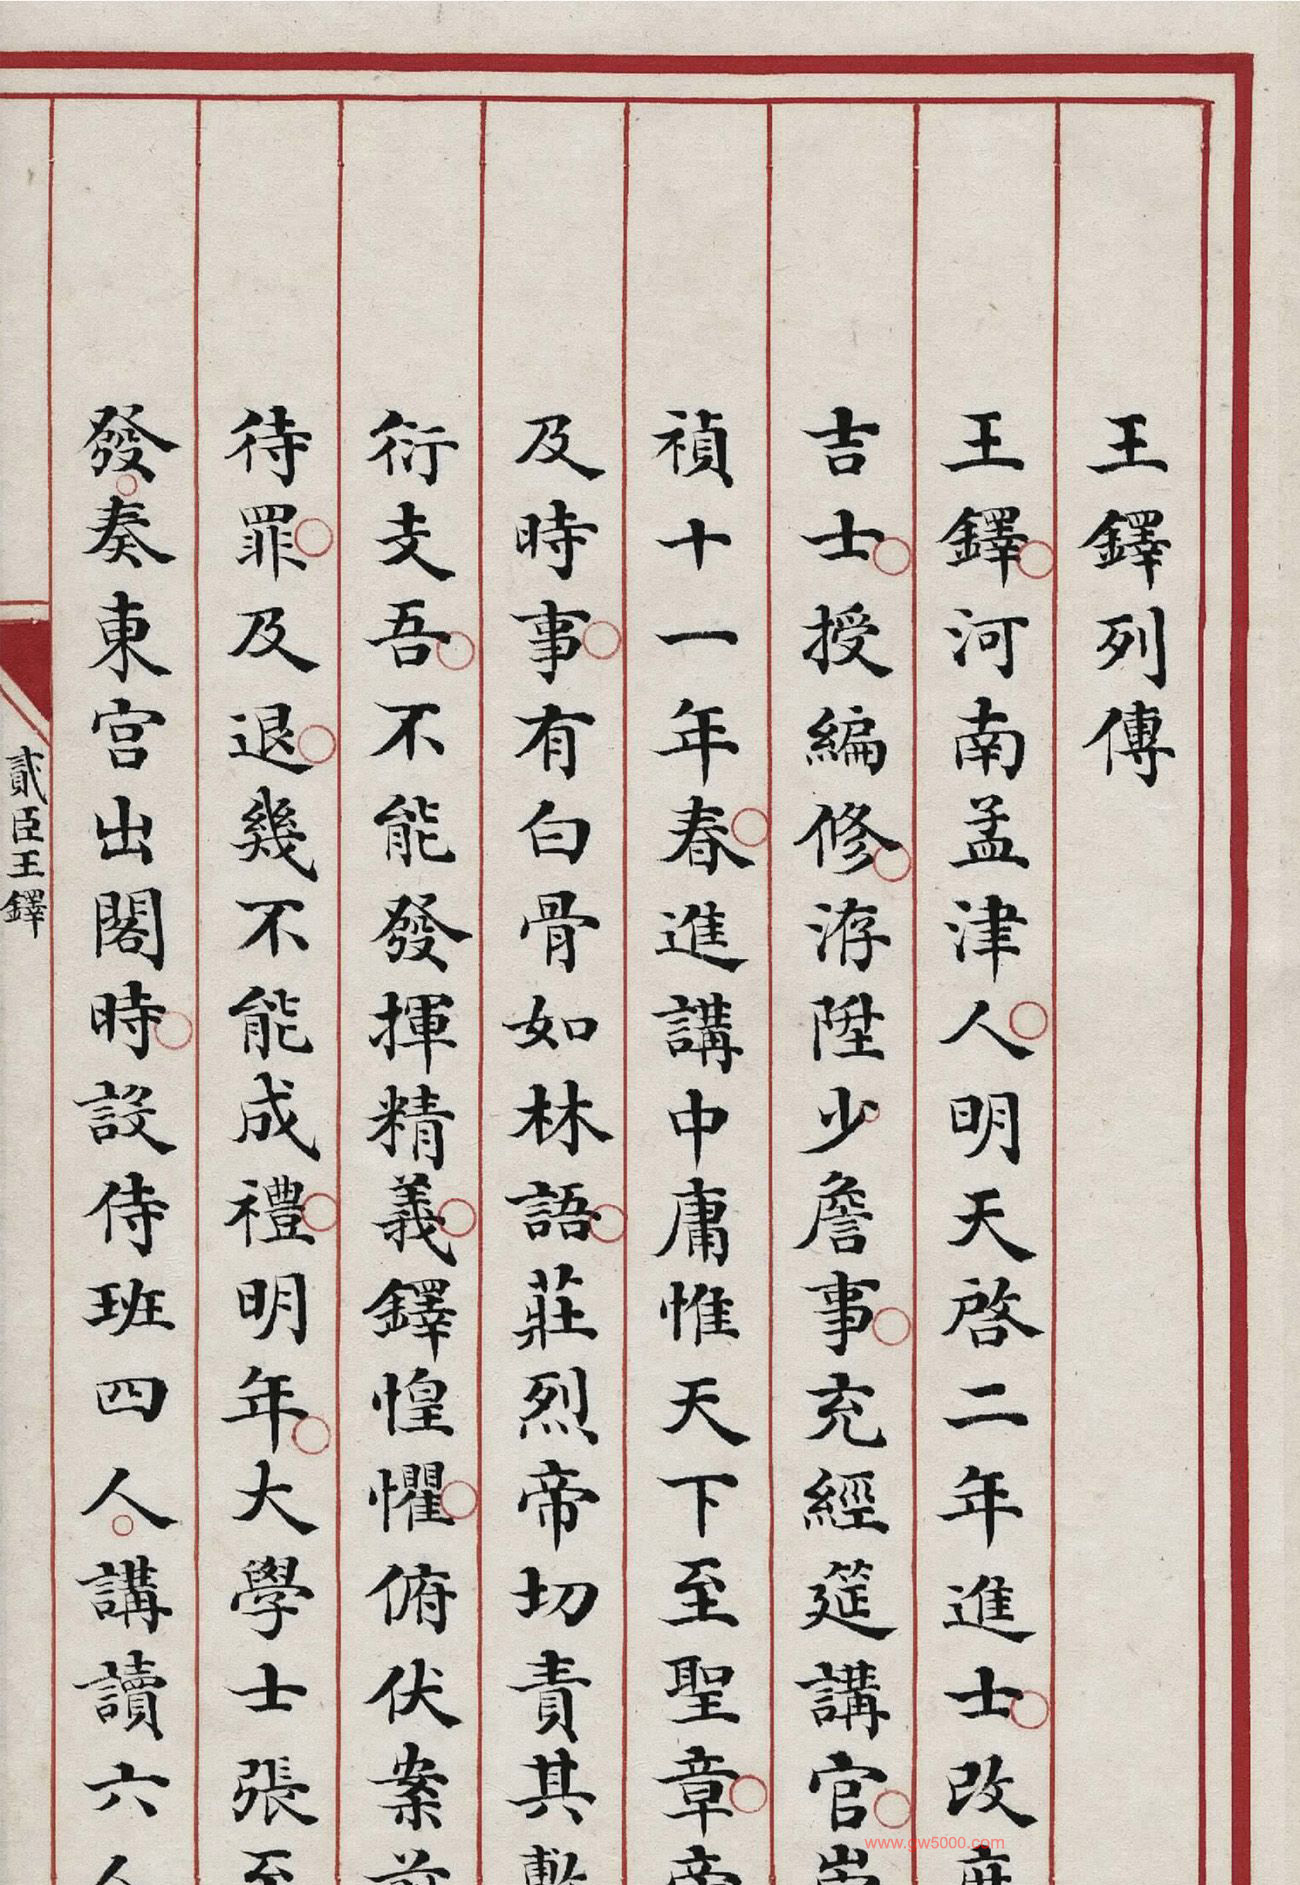 王鐸列傳
王鐸河南孟津人明天啓二年進士改
吉士授編修洊陞少詹事充經筵講官
禎十一年春進講中庸惟天下至聖章
及時事有白骨如林語莊烈帝切責其
衍支吾不能發揮精義鐸惶懼俯伏案前
待罪及退幾不能成禮明年大學士張至
發奏東宮出閣時設侍班四人講讀六人
貳臣王鐸
www.gw5000.com